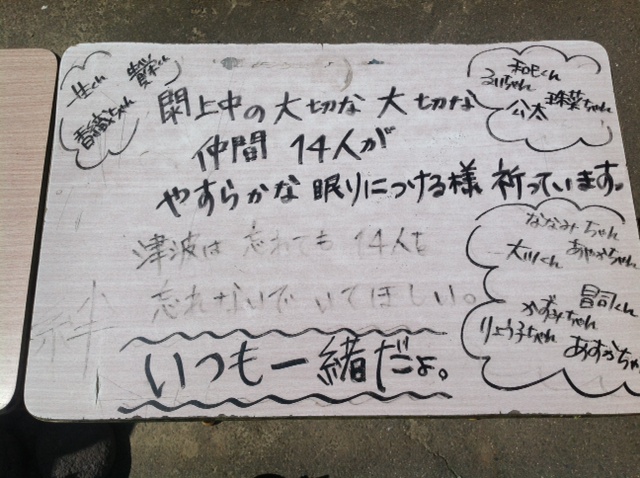 一生くん
香織ちゃん
和巳くん
るいちゃん
公太
珠菜ちゃん
閖上中の大切な大切な
仲間 14人が
やすらかな眠りにつける様 祈っています。
津波は 忘れても 14人を
忘れないで いてほしい。
絆
いつも一緒だよ。
ななみちゃん
大川くん
あやかちゃん
昌司くん
かずみちゃん
りょう子ちゃん
あすかちゃ